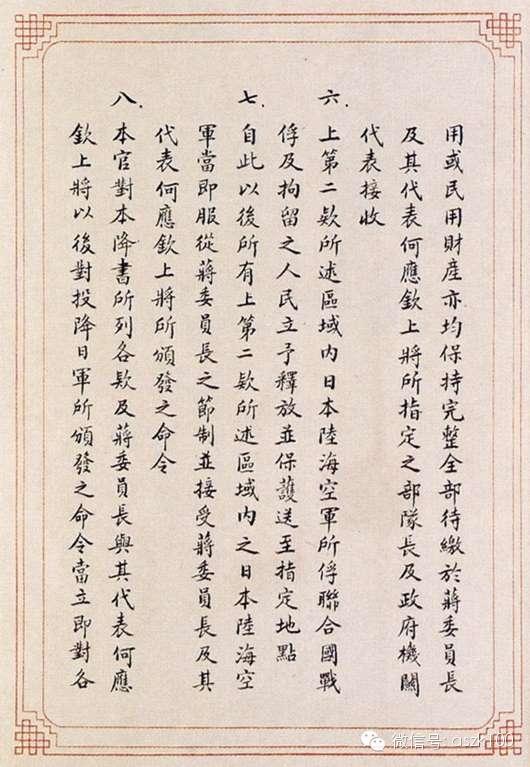 用或民用財產亦均保持完整全部待繳於蔣委員長
及其代表何應欽上將所指定之部隊長及政府機關
代表接收
六．上第二欵所述區域內日本陸海空軍所俘聯合國戰
俘及拘留之人民立予釋放並保護送至指定地點
七．自此以後所有上第二欵所述區域內之日本陸海空
軍當即服從蔣委員長之節制並接受蔣委員長及其
代表何應欽上將所頒發之命令
八．本官對本降書所列各欵及蔣委員長與其代表何應
欽上將以後對投降日軍所頒發之命令當立即對各
微信号: qszh100